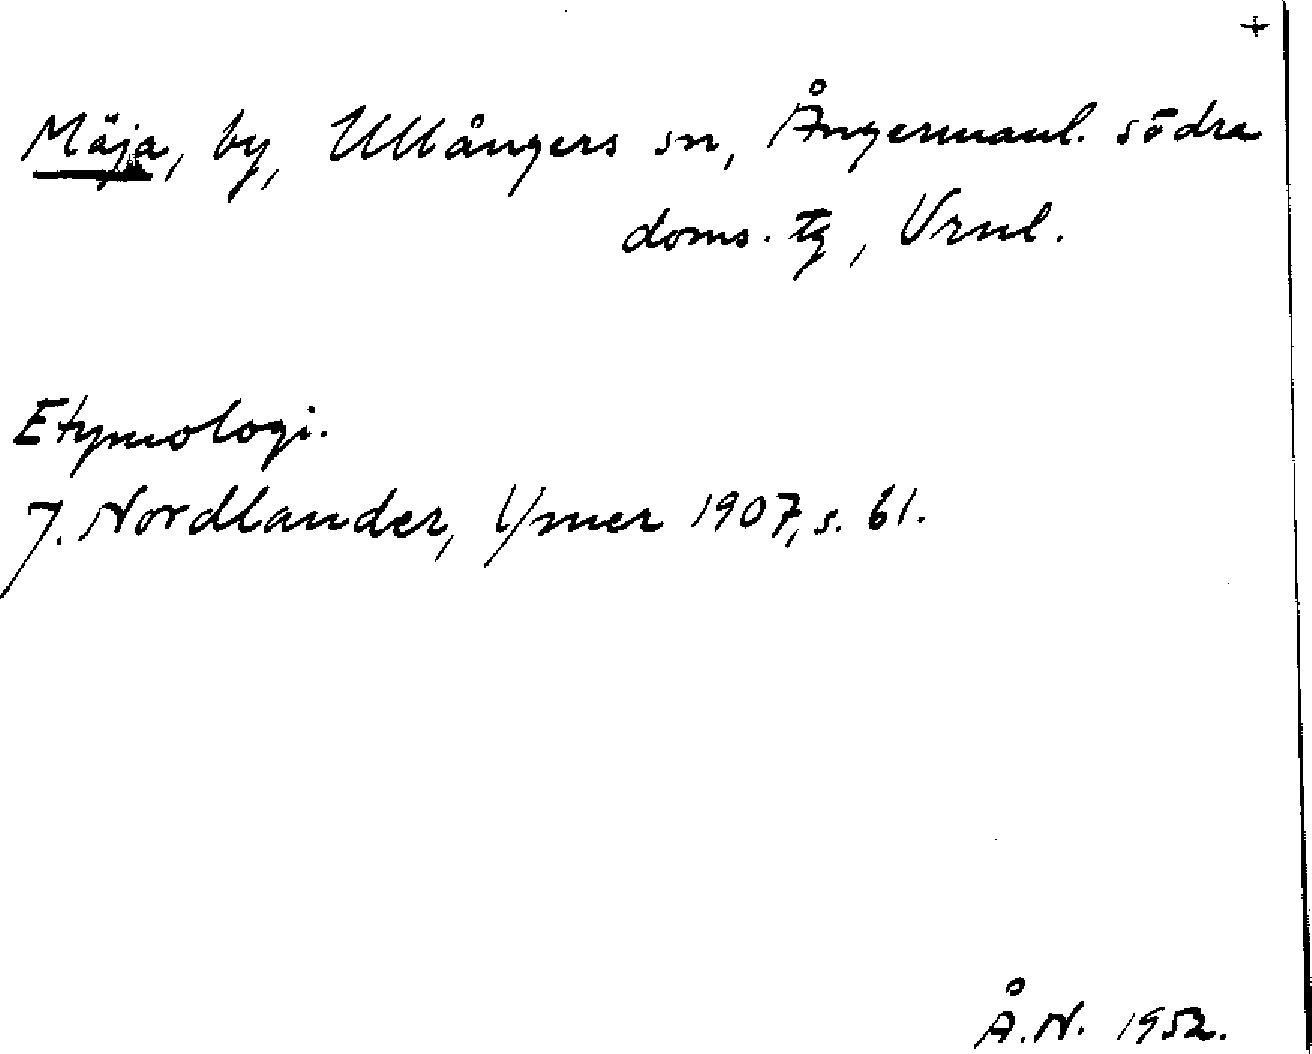 +
Mäja, by, Ullångers sn, Ångermanl. södra
doms. tg, Vrnl.
Etymologi.
J. Nordlander, Ymer 1907, s. 61.
Å.N. 1952.